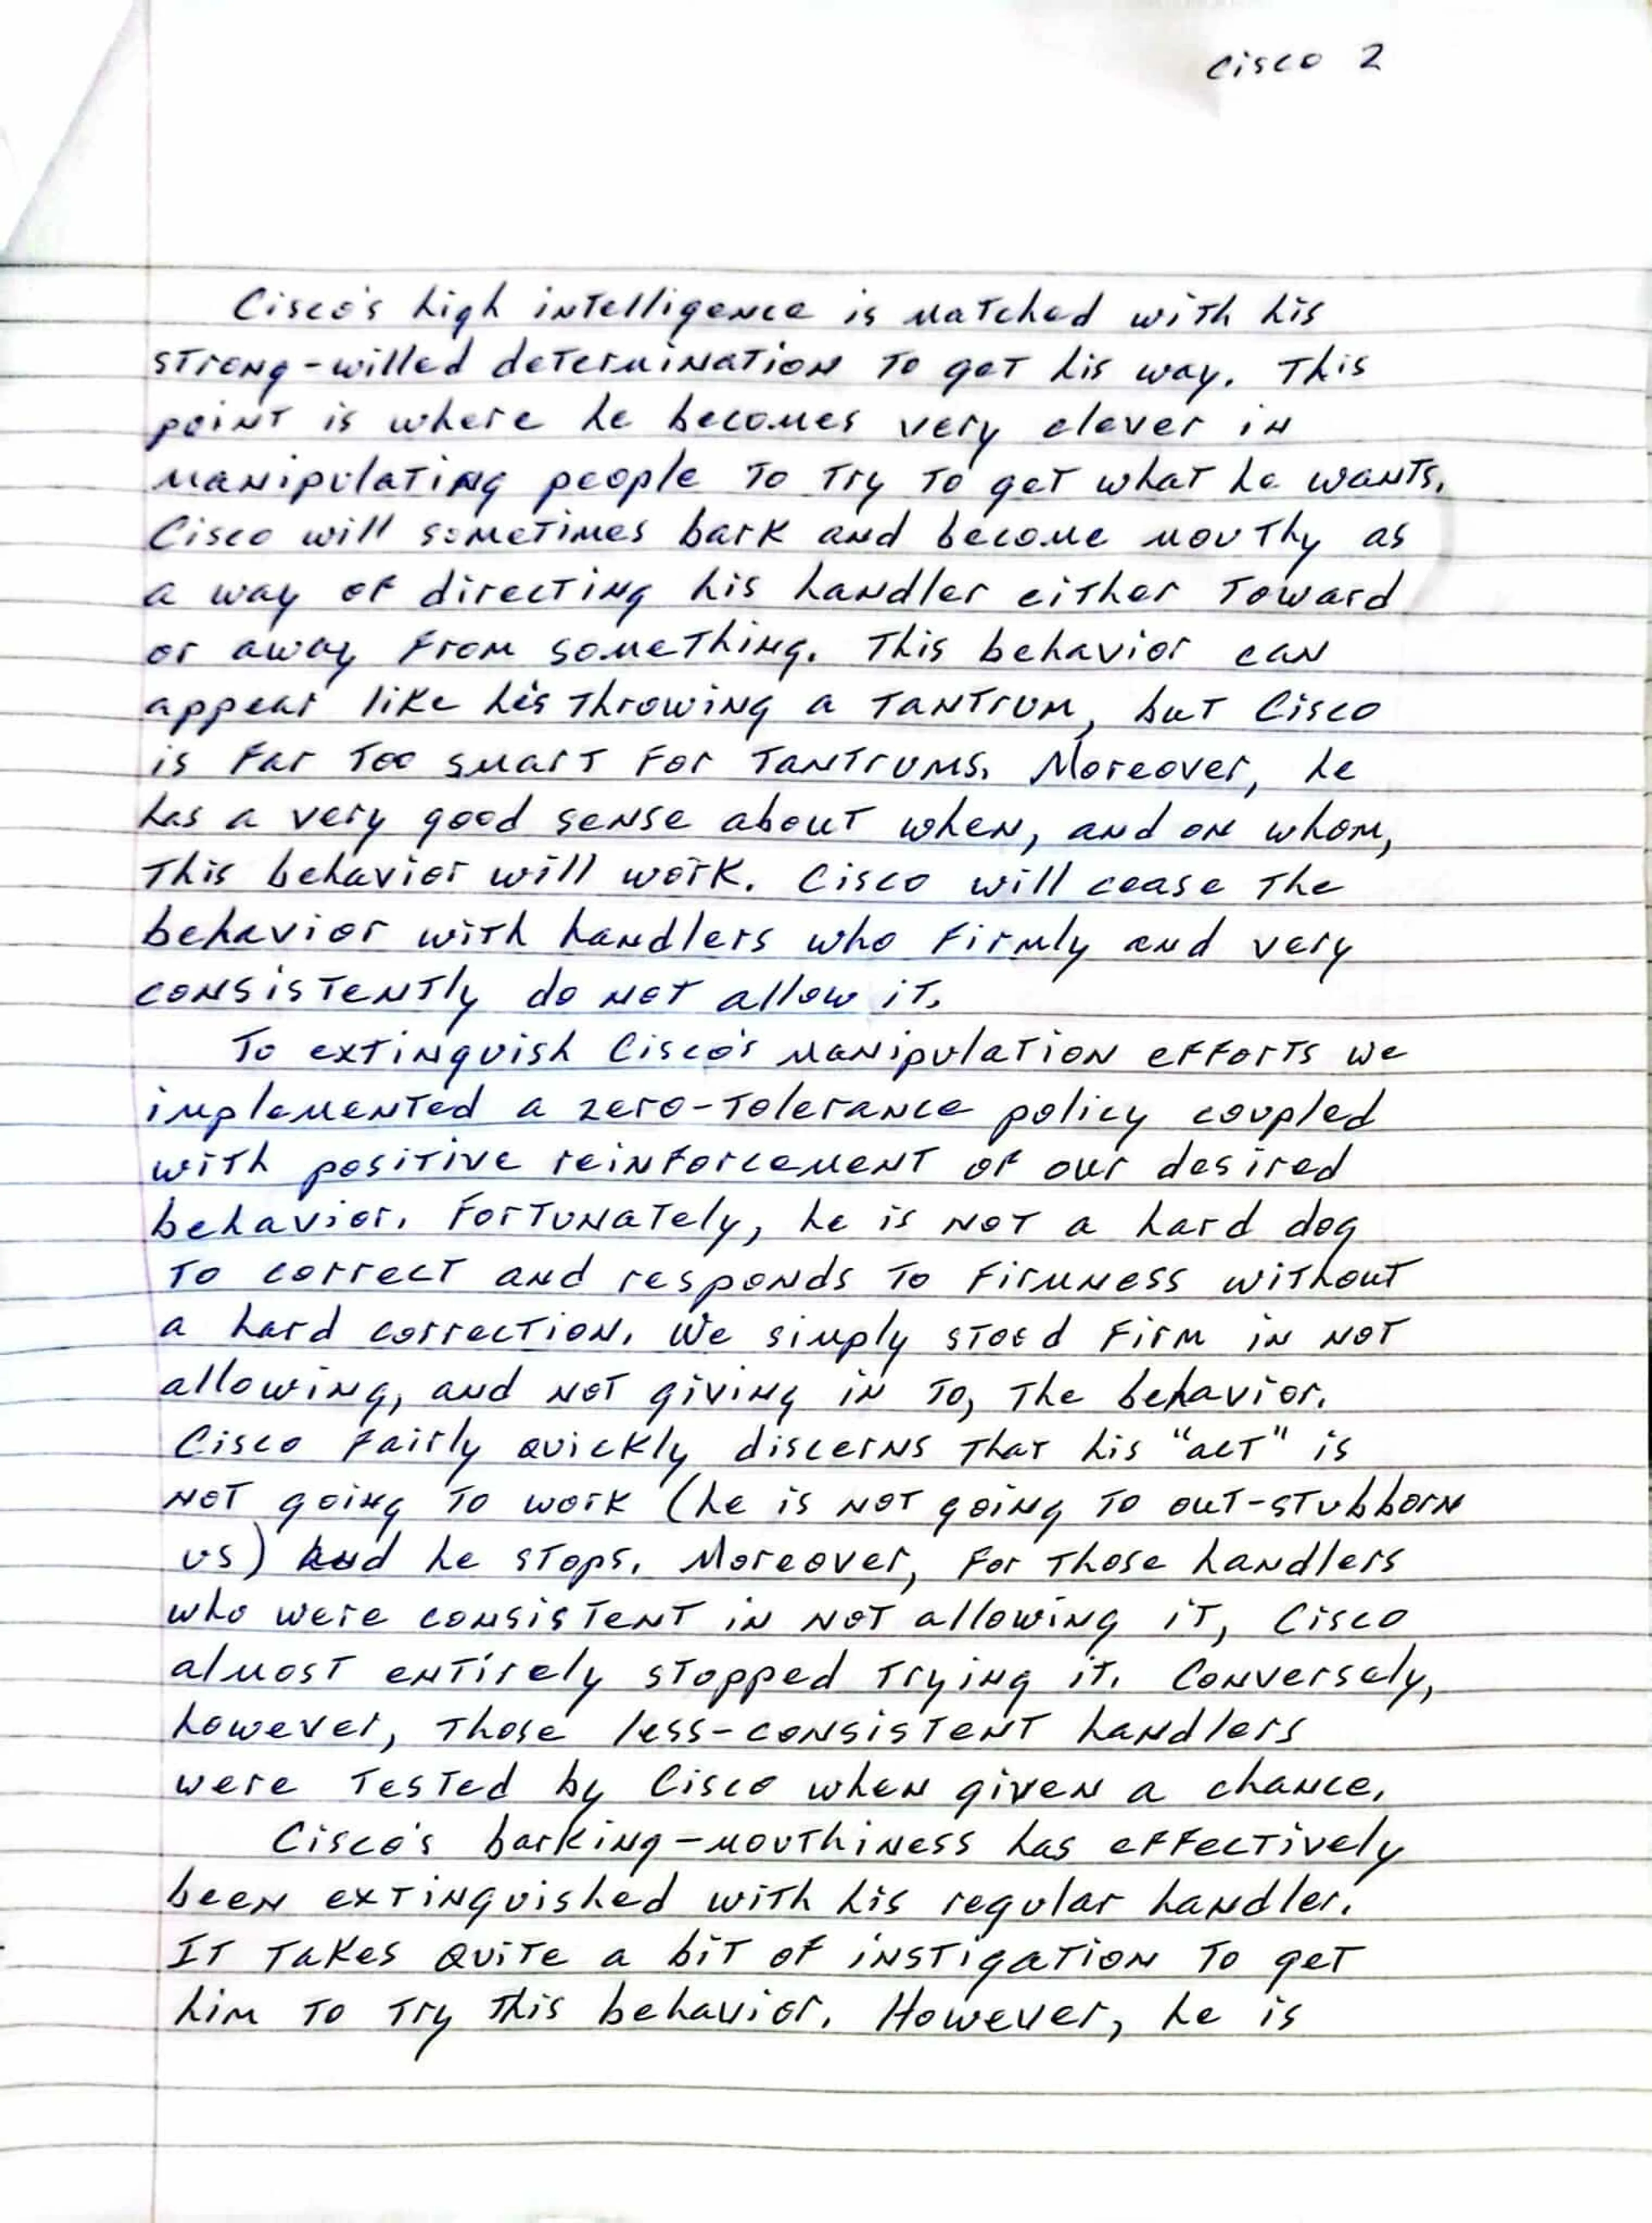 Cisco 2
Cisco's high intelligence is matched with his
strong-willed determination to get his way. This
point is where he becomes very clever in
manipulating people to try to get what he wants.
Cisco will sometimes bark and become mouthy as
a way of directing his handler either toward
or away from something. This behavior can
appear like his throwing a tantrum, but Cisco
is far too smart for tantrums. Moreover, he
has a very good sense about when, and on whom,
this behavior will work. Cisco will cease the
behavior with handlers who firmly and very
consistently do not allow it.
To extinguish Cisco's manipulation efforts we
implemented a zero-tolerance policy coupled
with positive reinforcement of our desired
behavior. Fortunately, he is not a hard dog
to correct and responds to firmness without
a hard correction. We simply stood firm in not
allowing, and not giving in to, the behavior.
Cisco fairly quickly discerns that his "act" is
not going to work (he is not going to out-stubborn
us) and he stops. Moreover, for those handlers
who were consistent in not allowing it, Cisco
almost entirely stopped trying it. Conversely,
however, those less-consistent handlers
were tested by Cisco when given a chance.
Cisco's barking-mouthiness has effectively
been extinguished with his regular handler.
It takes quite a bit of instigation to get
him to try this behavior. However, he is